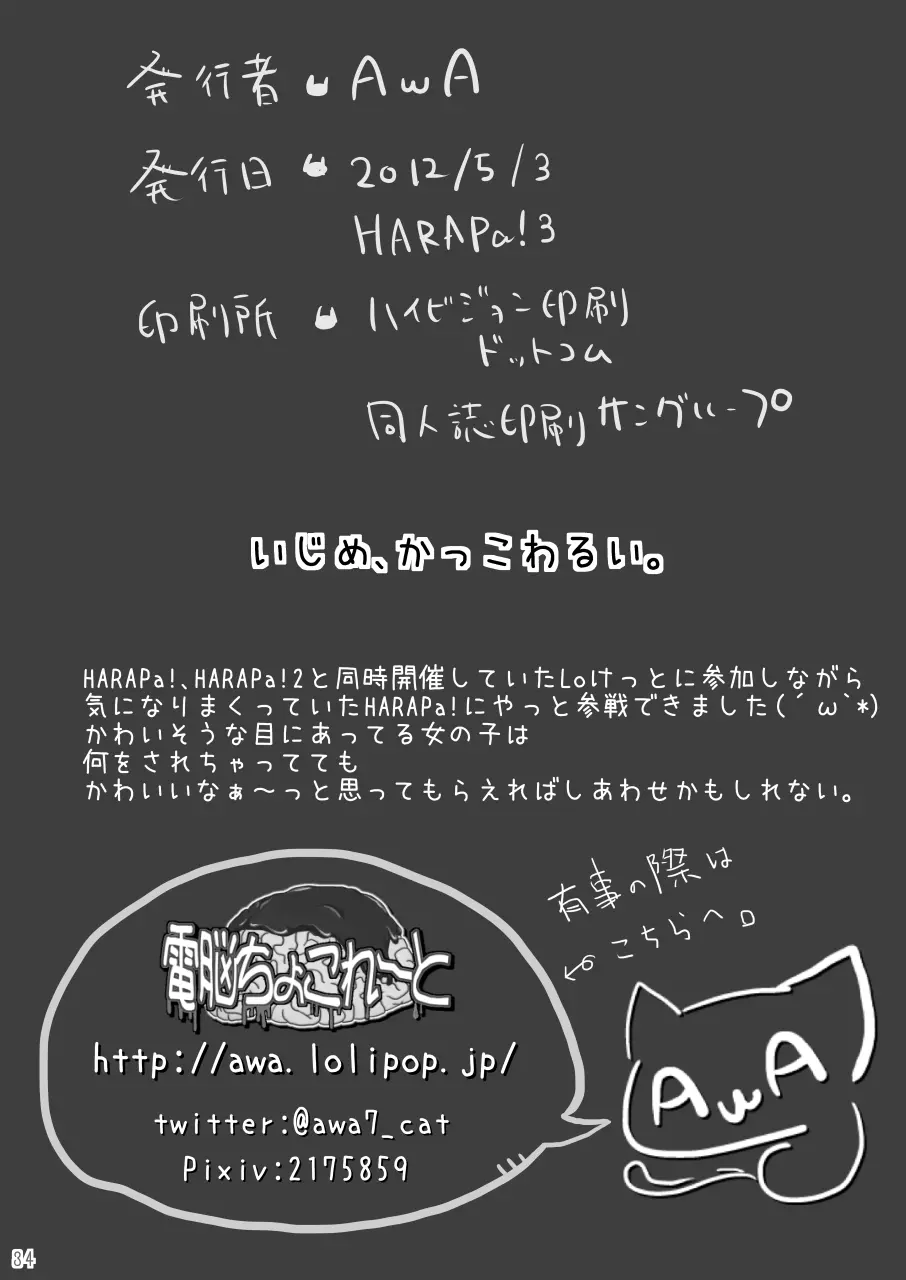 発行者 AwA
発行日 2012/5/3
HARAPa!3
印刷所 ハイビジョン印刷
ドットコム
同人誌印刷サングループ
いじめ、かっこわるい。
HARAPa!、HARAPa!2と同時開催していたLoけっとに参加しながら
気になりまくっていたHARAPa!にやっと参戦できました(´ω`*)
かわいそうな目にあってる女の子は
何をされちゃってても
かわいいなぁ～っと思ってもらえればしあわせかもしれない。
有事の際は
←こちらへ。
電脳ちょこれ～と
http://awa.lolipop.jp/
twitter:@awa7_cat
Pixiv:2175859
AwA
84